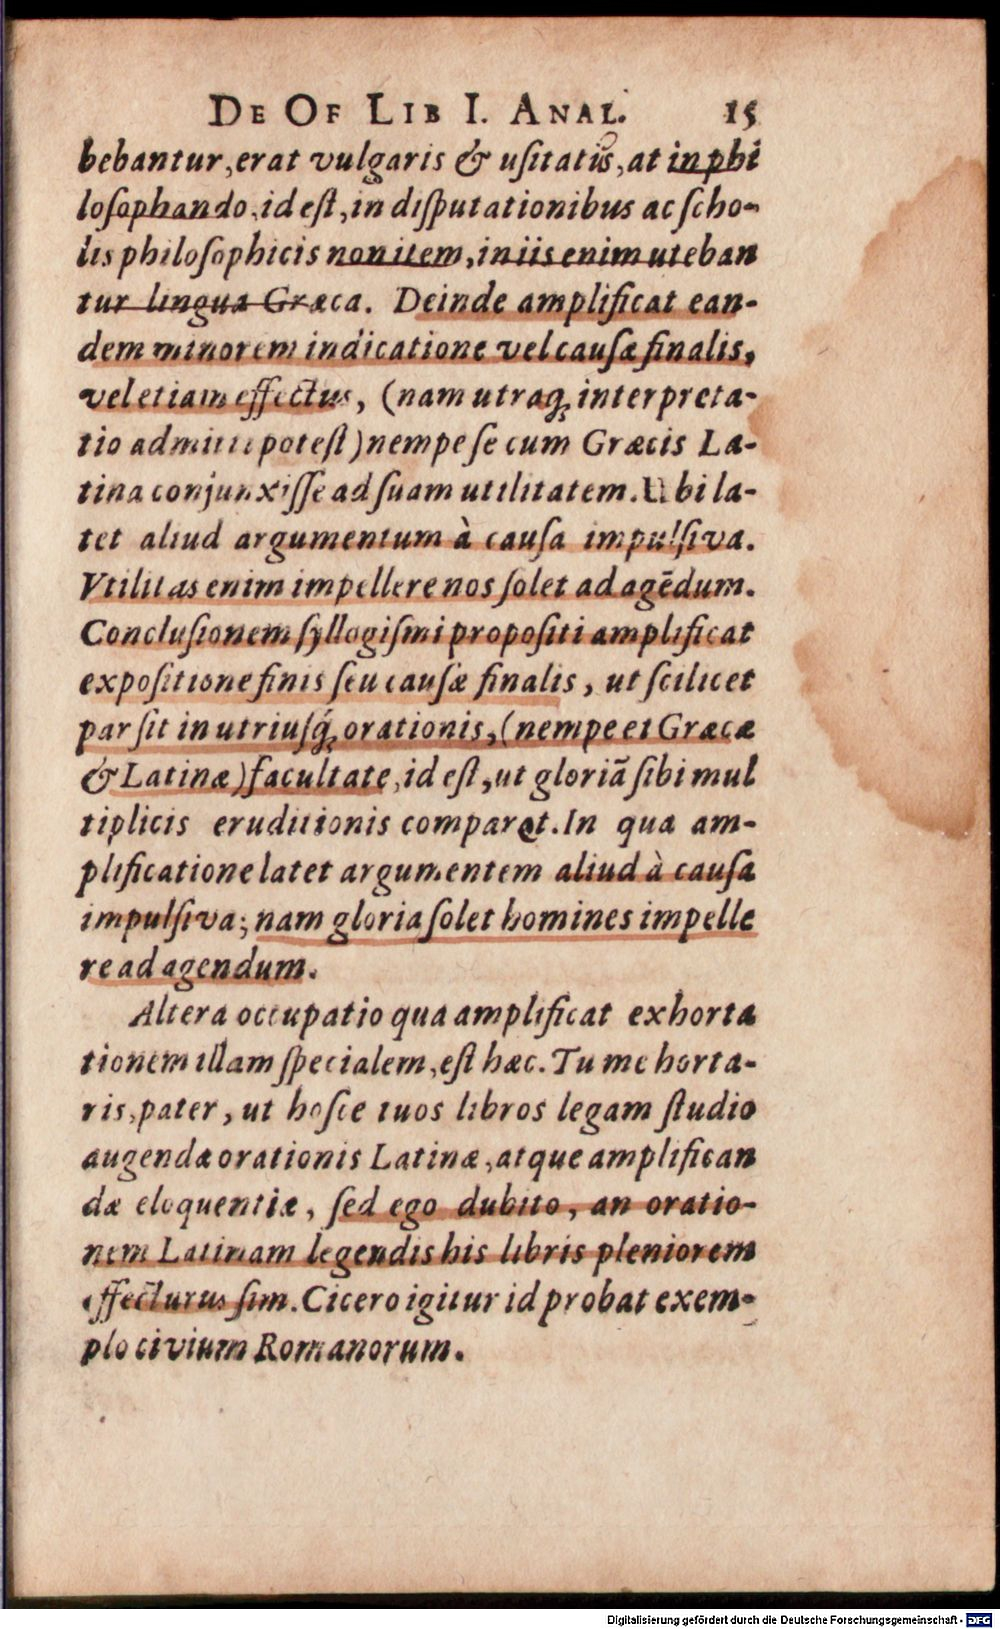 DE OF LIB I. ANAL. 15
bebantur, erat vulgaris & uſitatus, at in phi
loſophando, id eſt, in diſputationibus ac ſcho-
lis philoſophicis non item, in iis enim uteban
tur lingua Græca. Deinde amplificat ean-
dem minorem indicatione vel cauſæ finalis,
vel etiam effectus, (nam utraq; interpreta-
tio admitti poteſt) nempe ſe cum Græcis La-
tina conjunxiſſe ad ſuam utilitatem. Ubi la-
tet aliud argumentum à cauſa impulſiva.
Vtilitas enim impellere nos ſolet ad agēdum.
Concluſionem ſyllogiſmi propoſiti amplificat
expoſitione finis ſeu cauſæ finalis, ut ſcilicet
par ſit in utriuſq́; orationis, (nempe et Græcæ
& Latinæ) facultate, id eſt, ut gloriã ſibi mul
tiplicis eruditionis comparet. In qua am-
plificatione latet argumentem aliud à cauſa
impulſiva; nam gloria ſolet homines impelle
re ad agendum.
Altera occupatio qua amplificat exhorta
tionem illam ſpecialem, eſt hæc. Tu me horta-
ris, pater, ut hoſce tuos libros legam ſtudio
augendæ orationis Latinæ, atque amplifican
dæ eloquentiæ, ſed ego dubito, an oratio-
nem Latinam legendis his libris pleniorem
effecturus ſim. Cicero igitur id probat exem-
plo civium Romanorum.
Digitalisierung gefördert durch die Deutsche Forschungsgemeinschaft - DFG